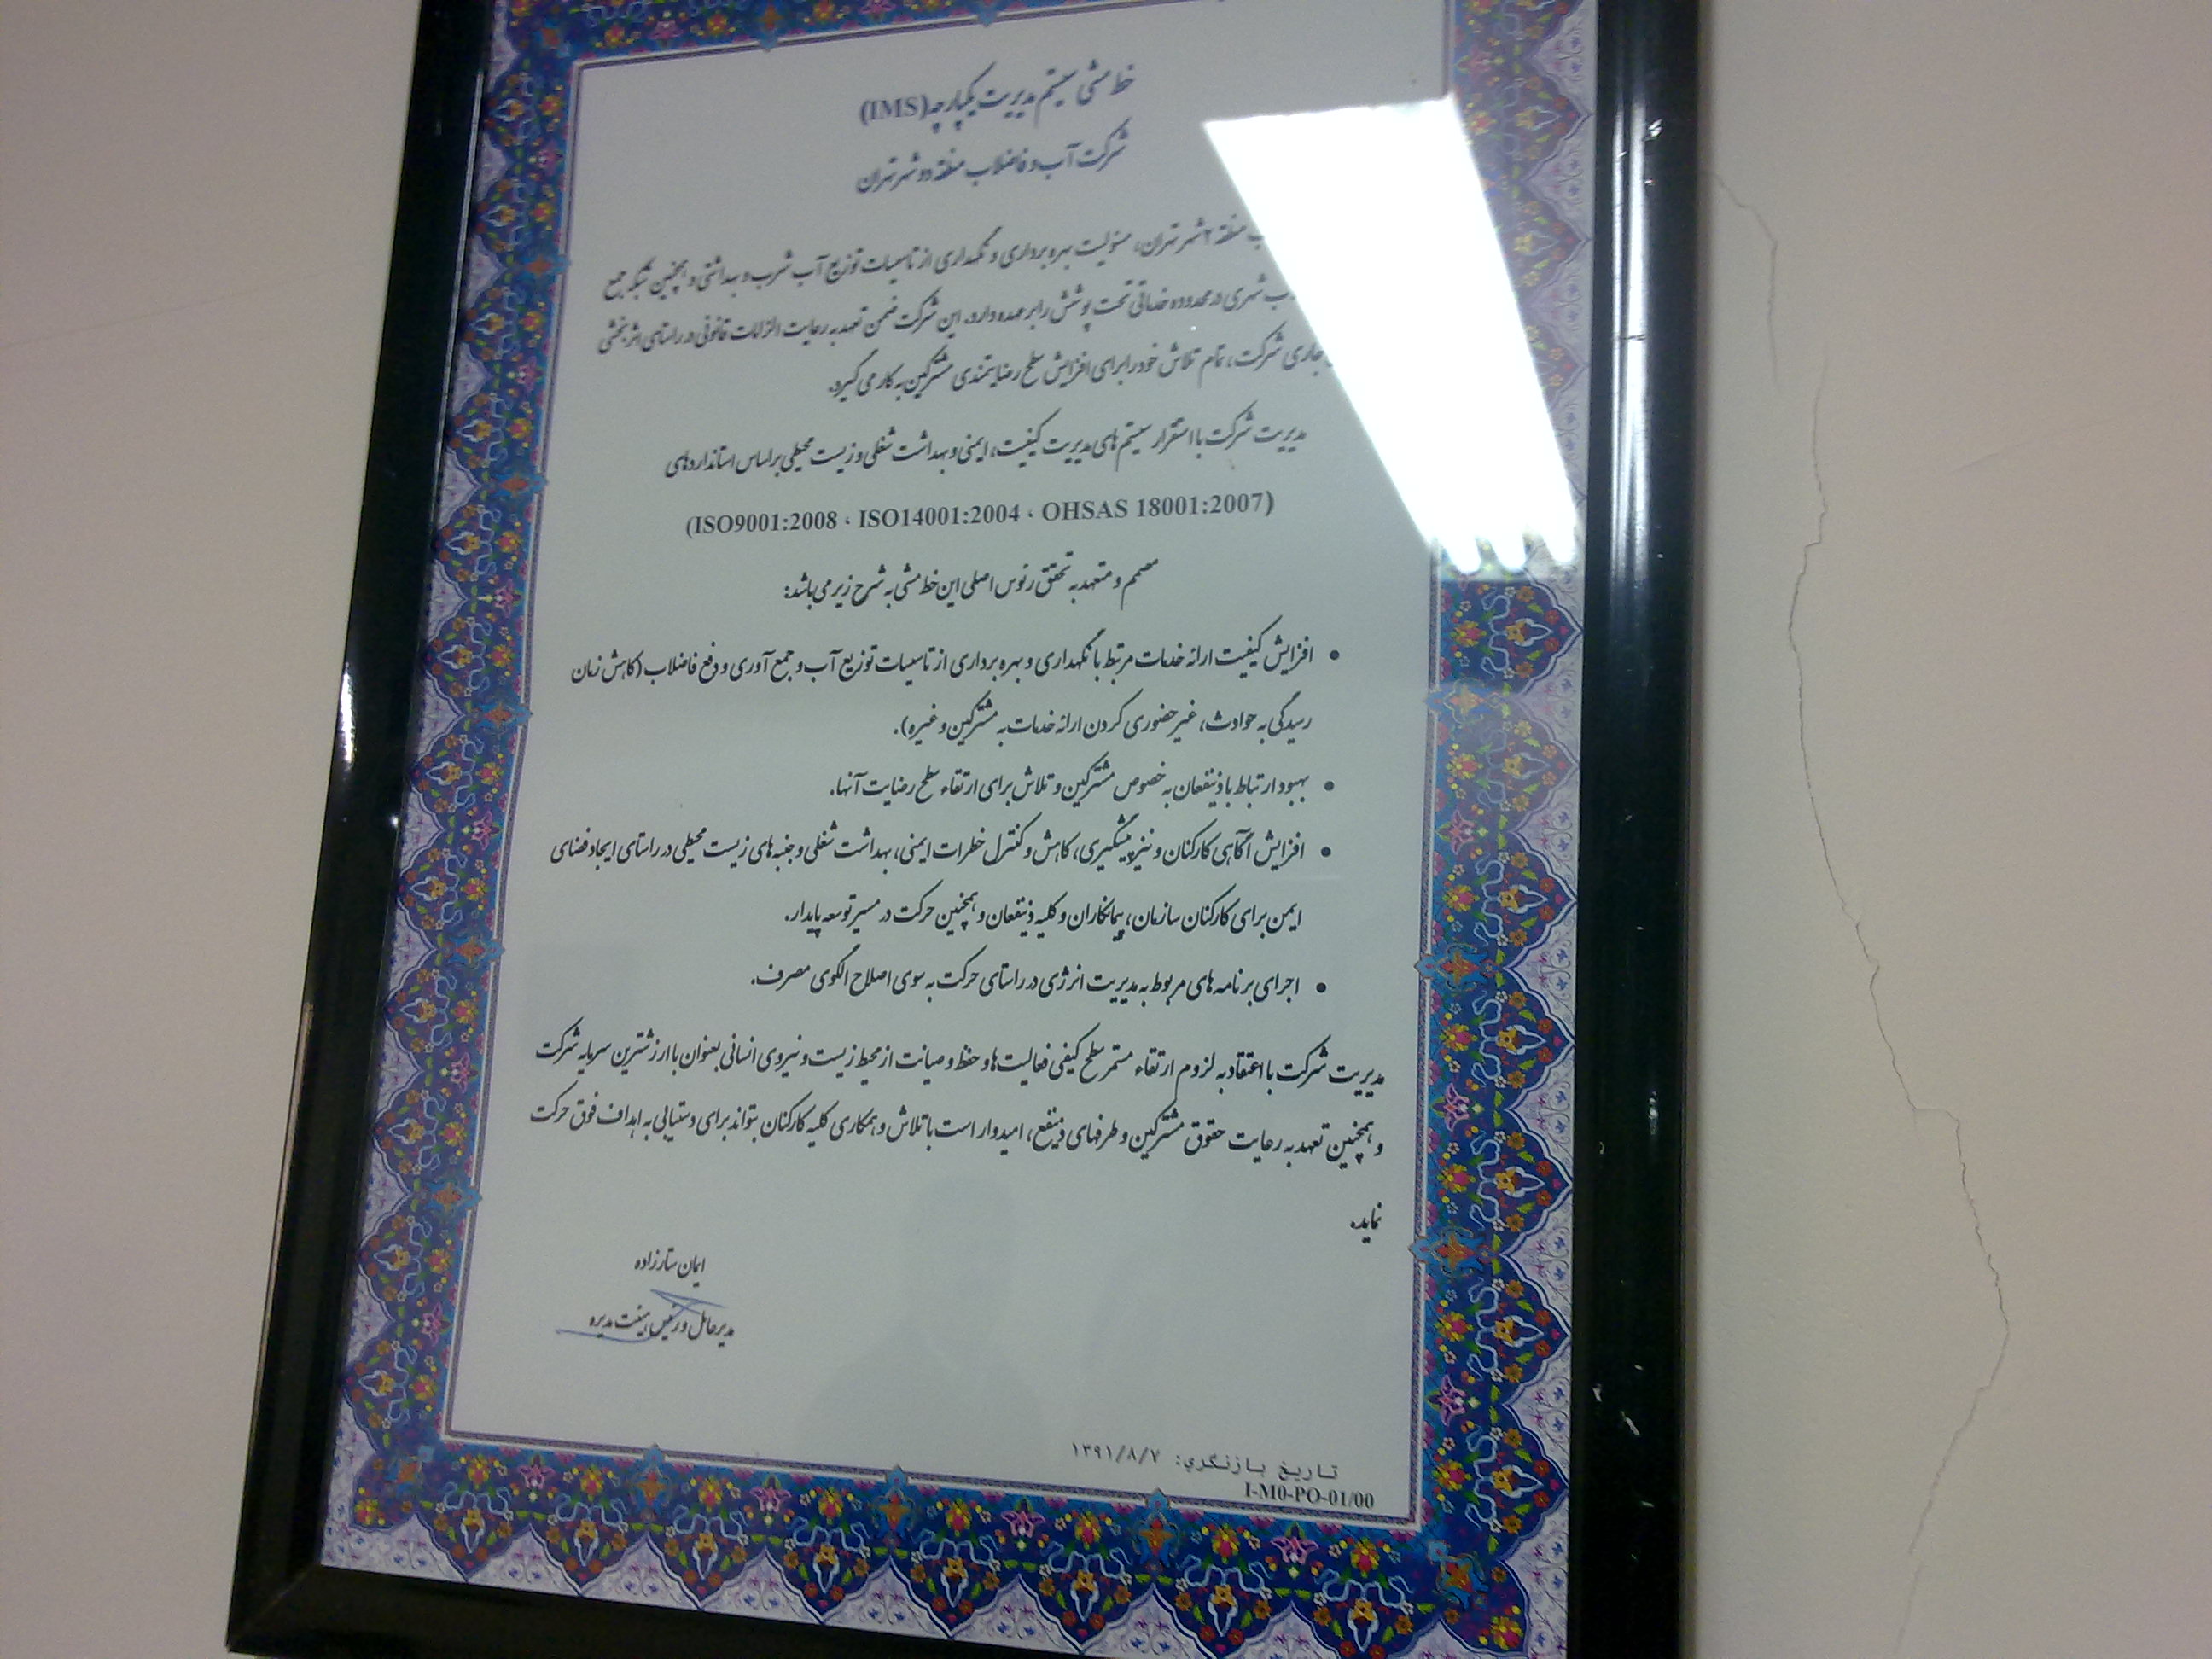 خط مشی سیستم مدیریت یکپارچه (IMS)
شرکت آب و فاضلاب منطقه دو شهر تهران
منطقه ۲ شهر تهران، مسئولیت بهره برداری و نگهداری از تاسیسات توزیع آب شرب و بهداشتی و همچنین شبکه جمع
شهری در محدوده خدماتی تحت پوشش را بر عهده دارد. این شرکت ضمن تعهد به رعایت الزامات قانونی در راستای اثربخشی
جاری شرکت، تمام تلاش خود را برای افزایش سطح رضایتمندی مشترکین به کار می گیرد.
مدیریت شرکت با استقرار سیستم های مدیریت کیفیت، ایمنی و بهداشت شغلی و زیست محیطی بر اساس استانداردهای
(ISO9001:2008 ، ISO14001:2004 ، OHSAS 18001:2007)
مصمم و متعهد به تحقق رئوس اصلی این خط مشی به شرح زیر می باشد:
• افزایش کیفیت ارائه خدمات مرتبط با نگهداری و بهره برداری از تاسیسات توزیع آب و جمع آوری و دفع فاضلاب (کاهش زمان
رسیدگی به حوادث، غیر حضوری کردن ارائه خدمات به مشترکین و غیره).
• بهبود ارتباط با ذینفعان به خصوص مشترکین و تلاش برای ارتقاء سطح رضایت آنها.
• افزایش آگاهی کارکنان و نیز پیشگیری، کاهش و کنترل خطرات ایمنی، بهداشت شغلی و جنبه های زیست محیطی در راستای ایجاد فضای
ایمن برای کارکنان سازمان، پیمانکاران و کلیه ذینفعان و همچنین حرکت در مسیر توسعه پایدار.
• اجرای برنامه های مربوط به مدیریت انرژی در راستای حرکت به سوی اصلاح الگوی مصرف.
مدیریت شرکت با اعتقاد به لزوم ارتقاء مستمر سطح کیفی فعالیت ها و حفظ و صیانت از محیط زیست و نیروی انسانی بعنوان با ارزشترین سرمایه شرکت
و همچنین تعهد به رعایت حقوق مشترکین و طرفهای ذینفع، امیدوار است با تلاش و همکاری کلیه کارکنان بتواند برای دستیابی به اهداف فوق حرکت
نماید.
ایمان ستارزاده
مدیرعامل و رئیس هیئت مدیره
تاریخ بازنگري: ۱۳۹۱/۸/۷
I-M0-PO-01/00